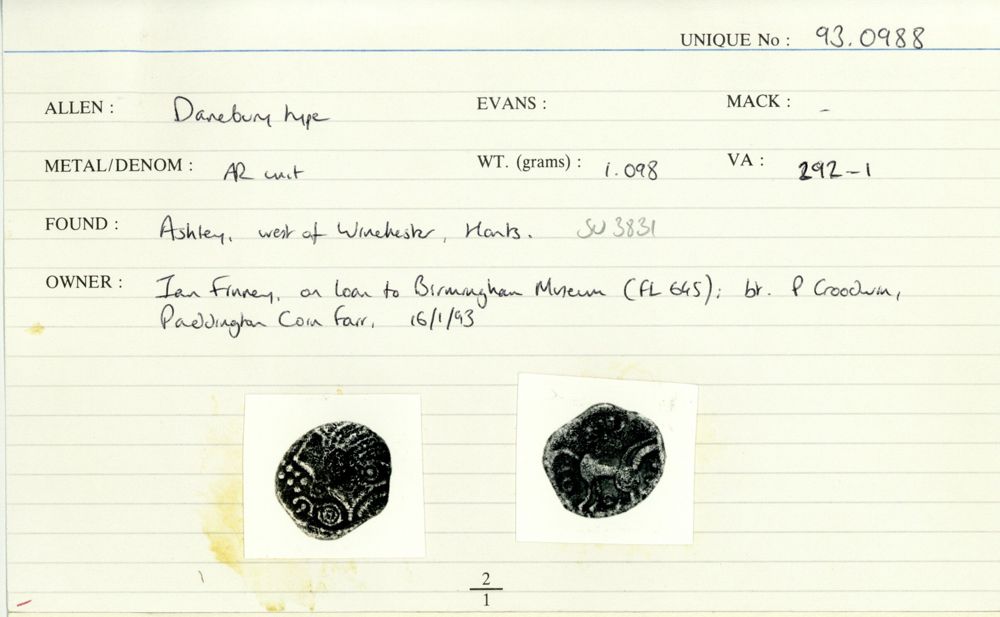 UNIQUE No : 93.0988
ALLEN : Danebury type EVANS : MACK : -
METAL/DENOM : AR unit WT. (grams) : 1.098 VA : 292-1
FOUND : Ashley, west of Winchester, Hants. SU 3831
OWNER : Ian Finney, on loan to Birmingham Museum (FL 645); bt. P Goodwin,
Paddington Coin Fair, 16/1/93
2
1